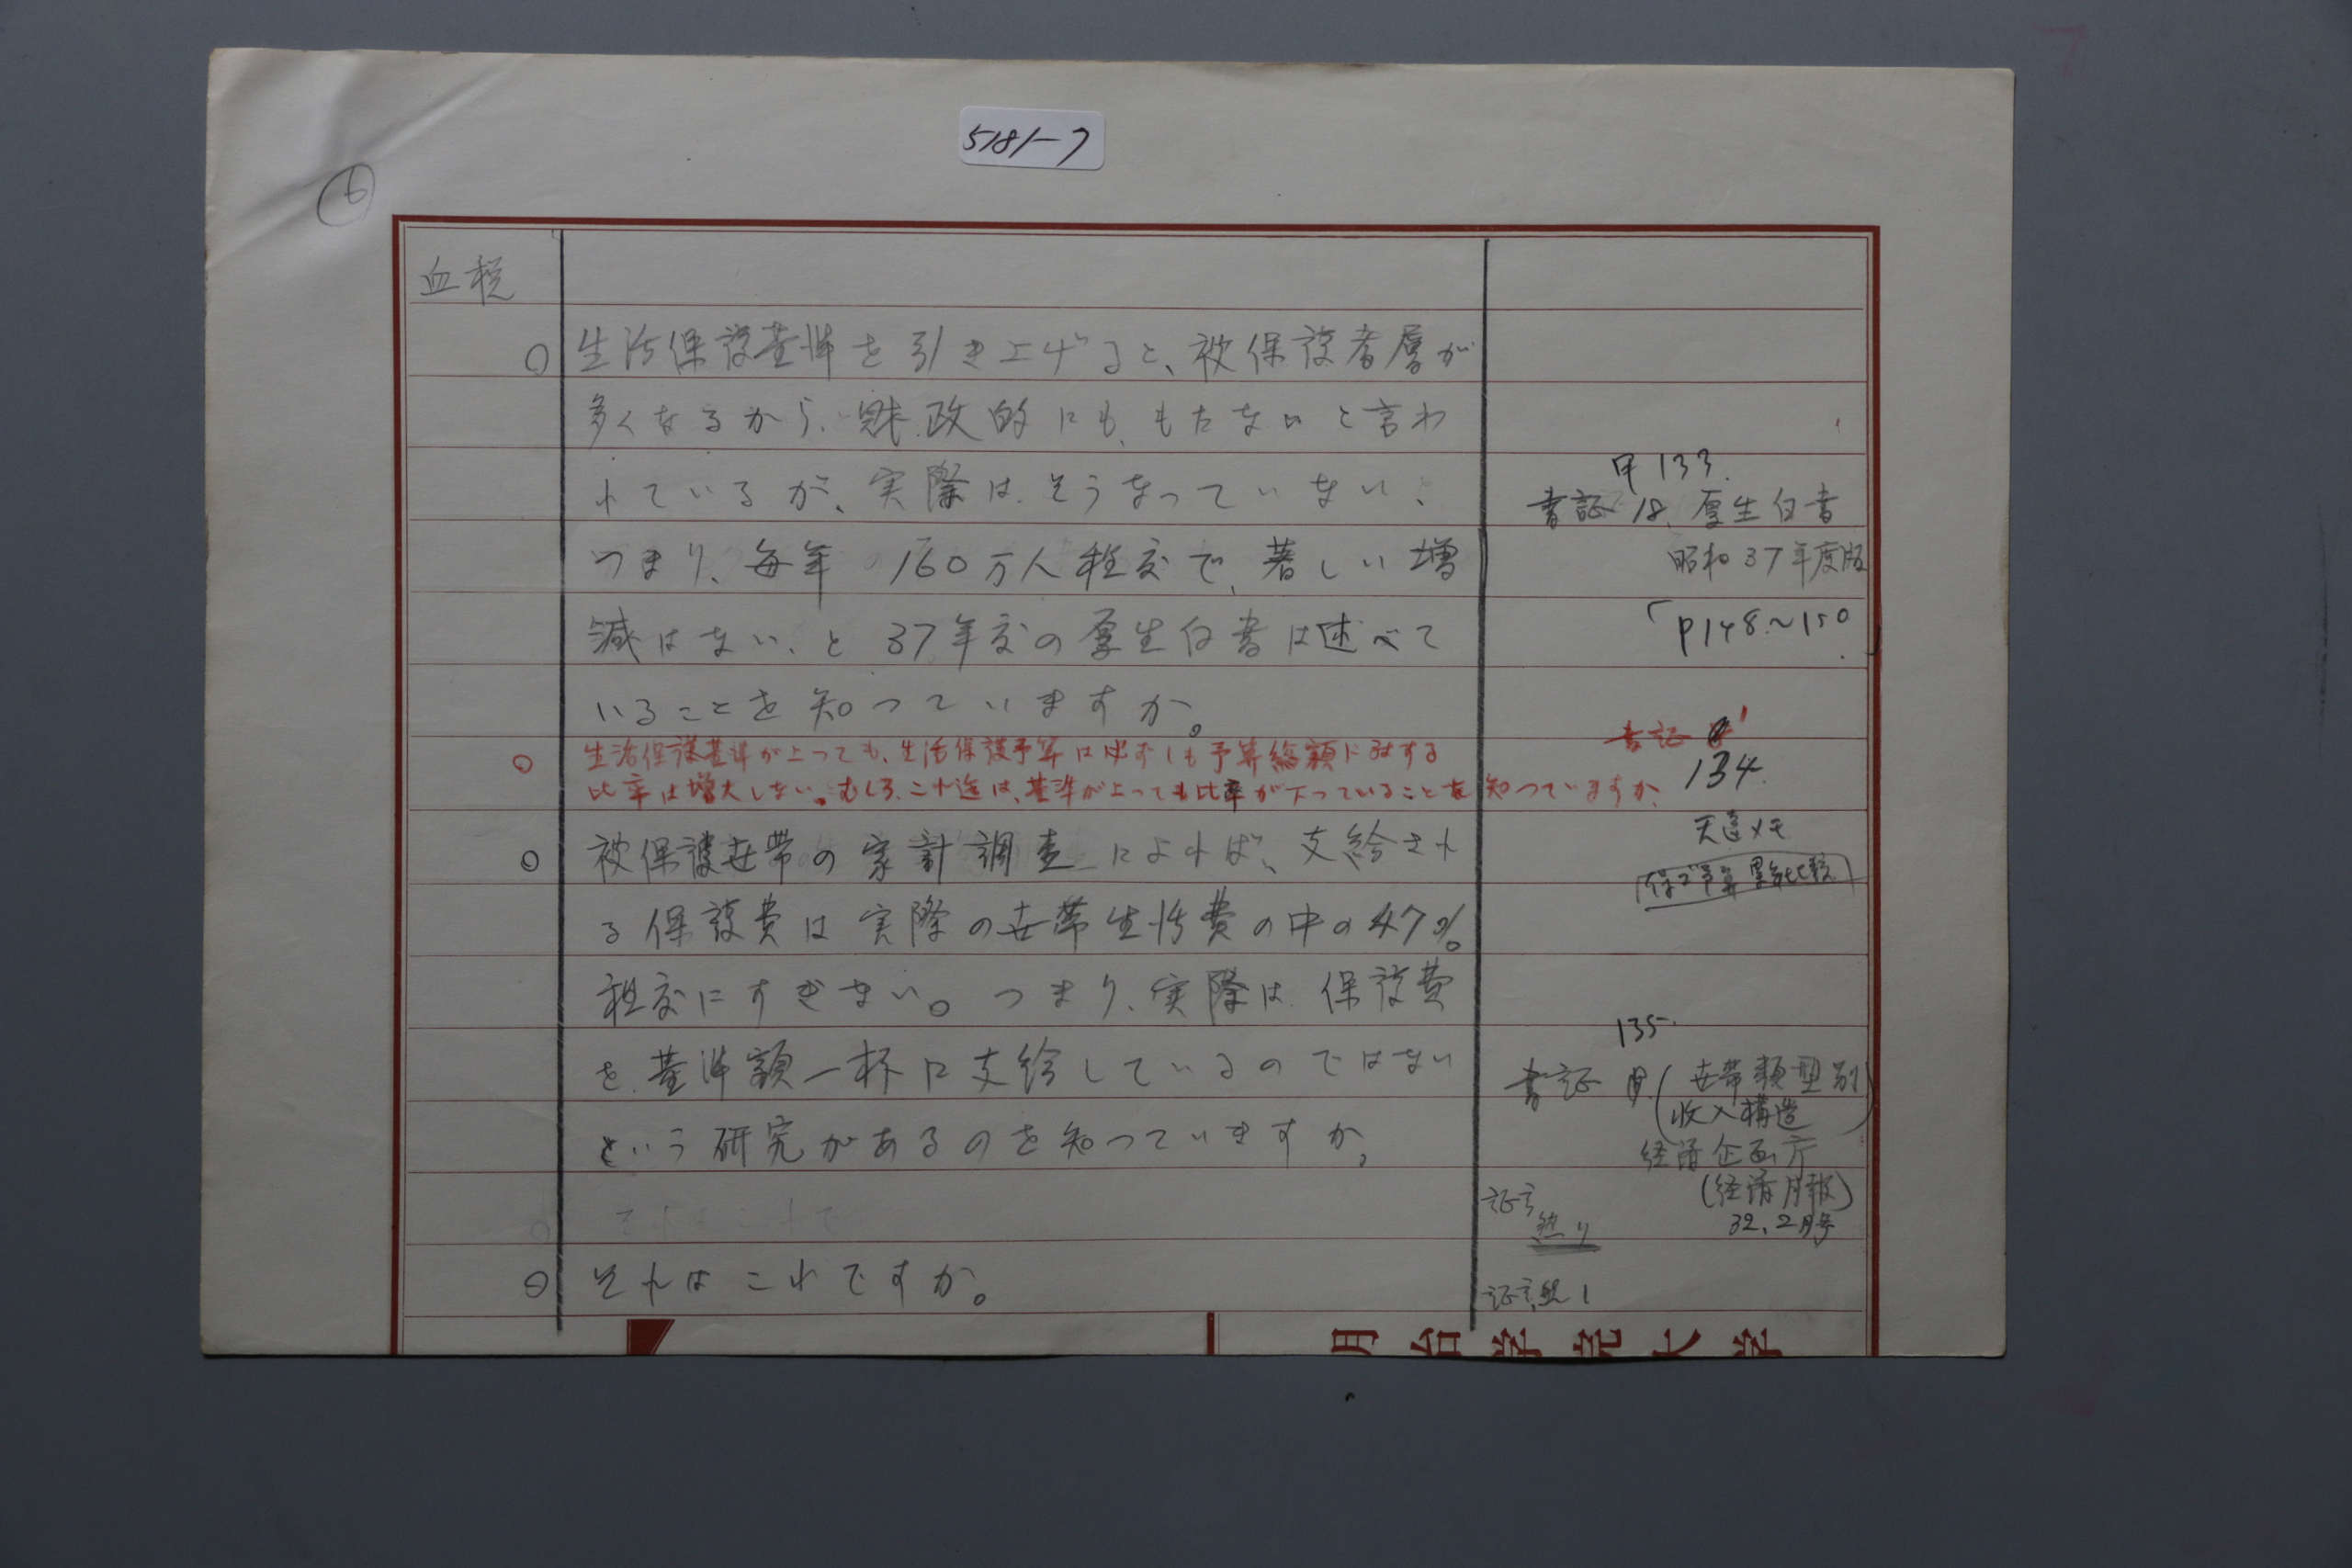 5181-7
6
血税
○ 生活保護基準を引き上げると、被保護者層が
多くなるから、財政的にも、もたないと言わ
れているが、実際は、そうなっていない、
つまり、毎年 160万人程度で、著しい増
減はない、と 37年度の厚生白書は述べて
いることを知っていますか。
甲133.
書証 18. 厚生白書
昭和37年度版
「P148.~150」
○ 生活保護基準が上っても、生活保護予算は必ずしも予算総額に対する
比率は増大しない。むしろ、これ迄は、基準が上っても比率が下っていることを知っていますか、
書証
134.
天達メモ
○ 被保護世帯の家計調査によれば、支給され
る保護費は実際の世帯生活費の中の47%
程度にすぎない。つまり、実際は、保護費
を、基準額一杯に支給しているのではない
という研究があるのを知っていますか。
135.
書証 (世帯類型別
収入構造)
経済企画庁
(経済月報)
32.2月号
証言
然り
○ それはこれですか。
証言然り
明治学院大学